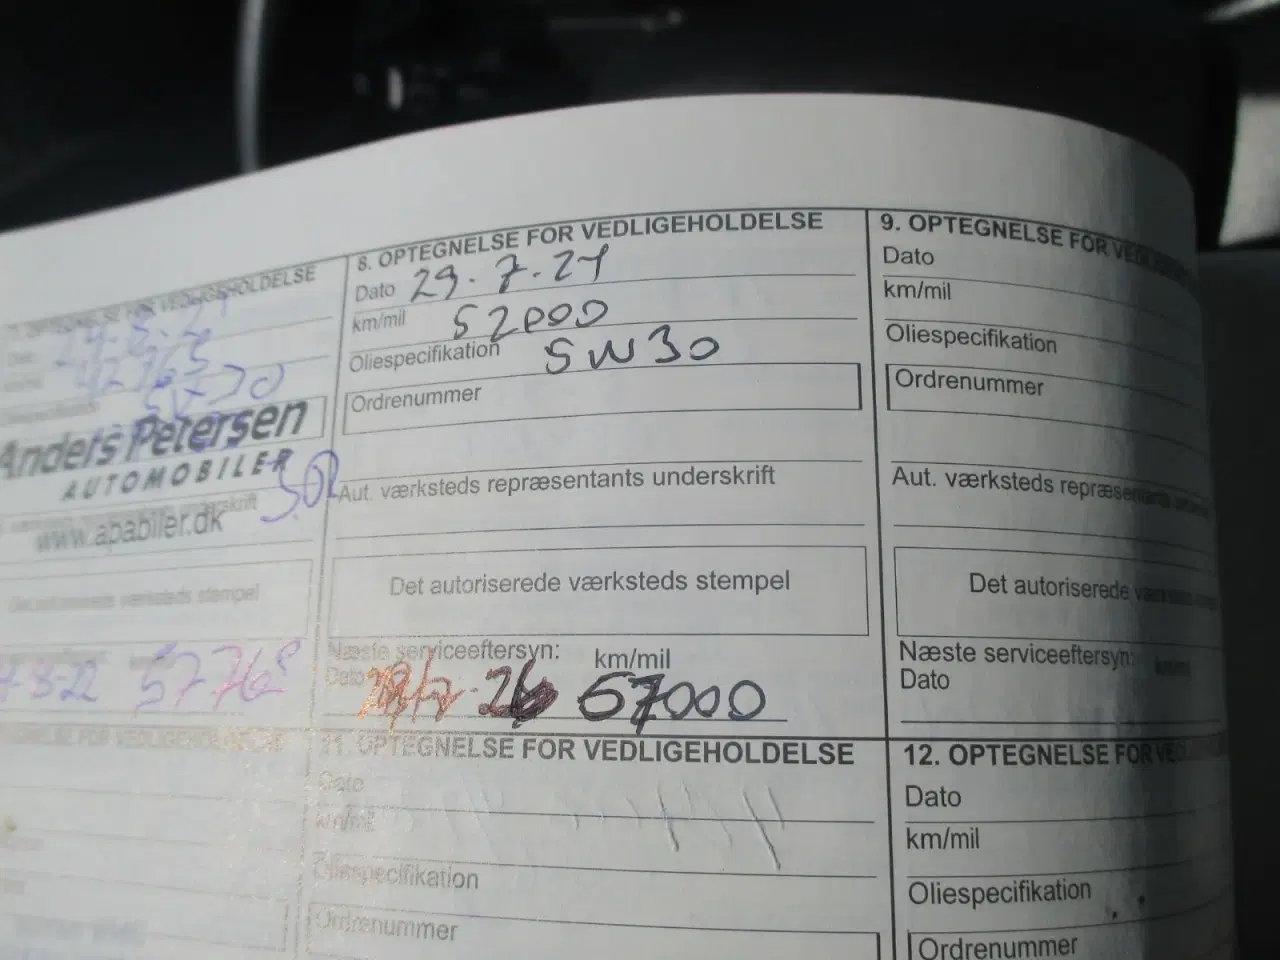 OPTEGNELSE FOR VEDLIGEHOLDELSE
42763
Anders Petersen
AUTOMOBILER
www.apabiler.dk
Det autoriserede værksteds stempel
57768
8. OPTEGNELSE FOR VEDLIGEHOLDELSE
Dato 29.7.21
km/mil 52000
Oliespecifikation 5W30
Ordrenummer
Aut. værksteds repræsentants underskrift
Det autoriserede værksteds stempel
Næste serviceeftersyn: km/mil
Dato 67000
9. OPTEGNELSE FOR
Dato
km/mil
Oliespecifikation
Ordrenummer
Aut. værksteds repræsentants
Det autoriserede
Næste serviceeftersyn: km/mil
Dato
11. OPTEGNELSE FOR VEDLIGEHOLDELSE
Dato
km/mil
Oliespecifikation
Ordrenummer
12. OPTEGNELSE FOR
Dato
km/mil
Oliespecifikation
Ordrenummer